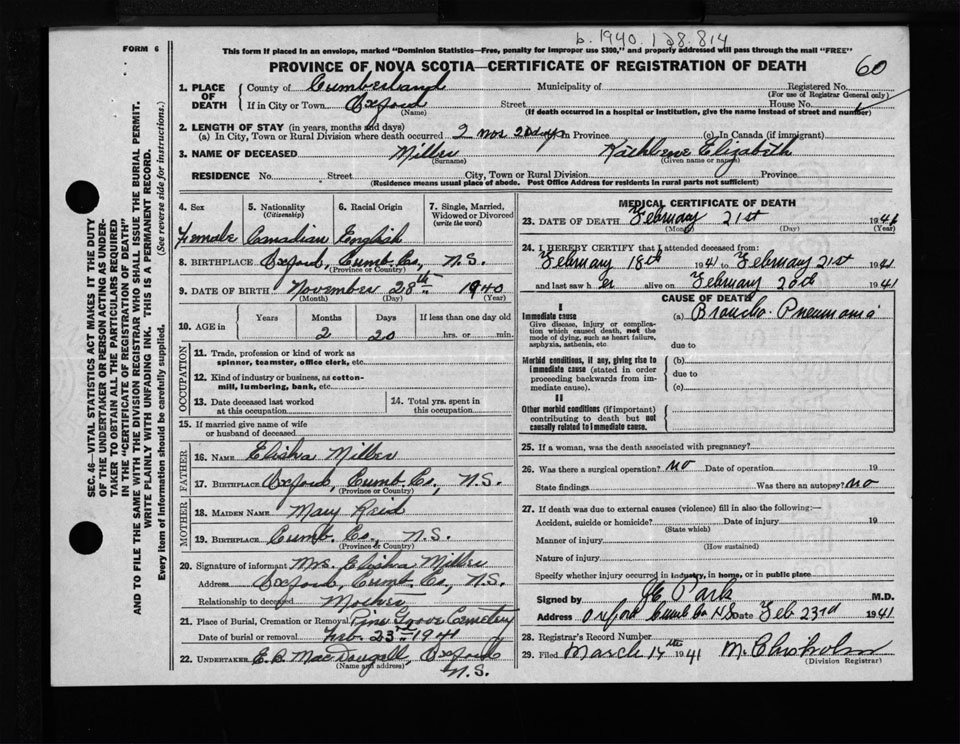 b. 1940. 128.814
FORM 6
This form if placed in an envelope, marked "Dominion Statistics—Free, penalty for improper use $300," and properly addressed will pass through the mail "FREE"
PROVINCE OF NOVA SCOTIA—CERTIFICATE OF REGISTRATION OF DEATH
60
SEC. 46—VITAL STATISTICS ACT MAKES IT THE DUTY
OF THE UNDERTAKER OR PERSON ACTING AS UNDER-
TAKER TO OBTAIN ALL THE PARTICULARS REQUIRED
IN THE "CERTIFICATE OF REGISTRATION OF DEATH"
AND TO FILE THE SAME WITH THE DIVISION REGISTRAR WHO SHALL ISSUE THE BURIAL PERMIT.
WRITE PLAINLY WITH UNFADING INK. THIS IS A PERMANENT RECORD.
Every item of information should be carefully supplied. (See reverse side for instructions.)
1. PLACE OF DEATH
County of Cumberland Municipality of Registered No.
(For use of Registrar General only)
If in City or Town Oxford Street House No.
(Name) (If death occurred in a hospital or institution, give the name instead of street and number)
2. LENGTH OF STAY (in years, months and days)
(a) In City, Town or Rural Division where death occurred 2 mos. 20 days In Province (c) In Canada (if immigrant)
3. NAME OF DECEASED Miller Kathlene Elizabeth
(Surname) (Given name or names)
RESIDENCE No. Street City, Town or Rural Division Province
(Residence means usual place of abode. Post Office Address for residents in rural parts not sufficient)
4. Sex 5. Nationality (Citizenship) 6. Racial Origin 7. Single, Married, Widowed or Divorced (write the word)
Female Canadian English
8. BIRTHPLACE Oxford, Cumb. Co., N.S.
(Province or Country)
9. DATE OF BIRTH November 28th 1940
(Month) (Day) (Year)
10. AGE in Years Months Days If less than one day old
2 20 hrs. or min.
OCCUPATION
11. Trade, profession or kind of work as spinner, teamster, office clerk, etc.
12. Kind of industry or business, as cotton-mill, lumbering, bank, etc.
13. Date deceased last worked at this occupation
14. Total yrs. spent in this occupation
15. If married give name of wife or husband of deceased
FATHER
16. NAME Elisha Miller
17. BIRTHPLACE Oxford, Cumb. Co., N.S.
(Province or Country)
MOTHER
18. MAIDEN NAME Mary Reid
19. BIRTHPLACE Cumb. Co., N.S.
(Province or Country)
20. Signature of informant Mrs. Elisha Miller
Address Oxford, Cumb. Co., N.S.
Relationship to deceased Mother
21. Place of Burial, Cremation or Removal Pine Grove Cemetery
Date of burial or removal Feb. 23rd 1941
22. UNDERTAKER E.B. MacDougall, Oxford
(Name and address) N.S.
MEDICAL CERTIFICATE OF DEATH
23. DATE OF DEATH February 21st 1941
(Month) (Day) (Year)
24. I HEREBY CERTIFY that I attended deceased from:
February 18th 1941 to February 21st 1941
and last saw her alive on February 20th 1941
CAUSE OF DEATH
I
Immediate cause (a) Broncho-Pneumonia
Give disease, injury or complication which caused death, not the mode of dying, such as heart failure, asphyxia, asthenia, etc.
due to
Morbid conditions, if any, giving rise to immediate cause (stated in order proceeding backwards from immediate cause).
(b)
due to
(c)
II
Other morbid conditions (if important) contributing to death but not causally related to immediate cause.
25. If a woman, was the death associated with pregnancy?
26. Was there a surgical operation? no Date of operation 19
State findings Was there an autopsy? no
27. If death was due to external causes (violence) fill in also the following:—
Accident, suicide or homicide? Date of injury 19
(State which)
Manner of injury
(How sustained)
Nature of injury
Specify whether injury occurred in industry, in home, or in public place
Signed by Park M.D.
Address Oxford Cumb Co N.S. Date Feb 23rd 1941
28. Registrar's Record Number
29. Filed March 14th 1941 M. Chisholm
(Division Registrar)